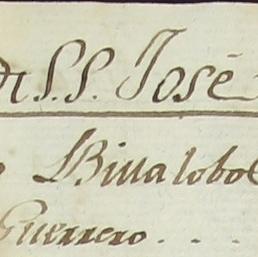 S.S. José
Billalobo
Guerrero . . .